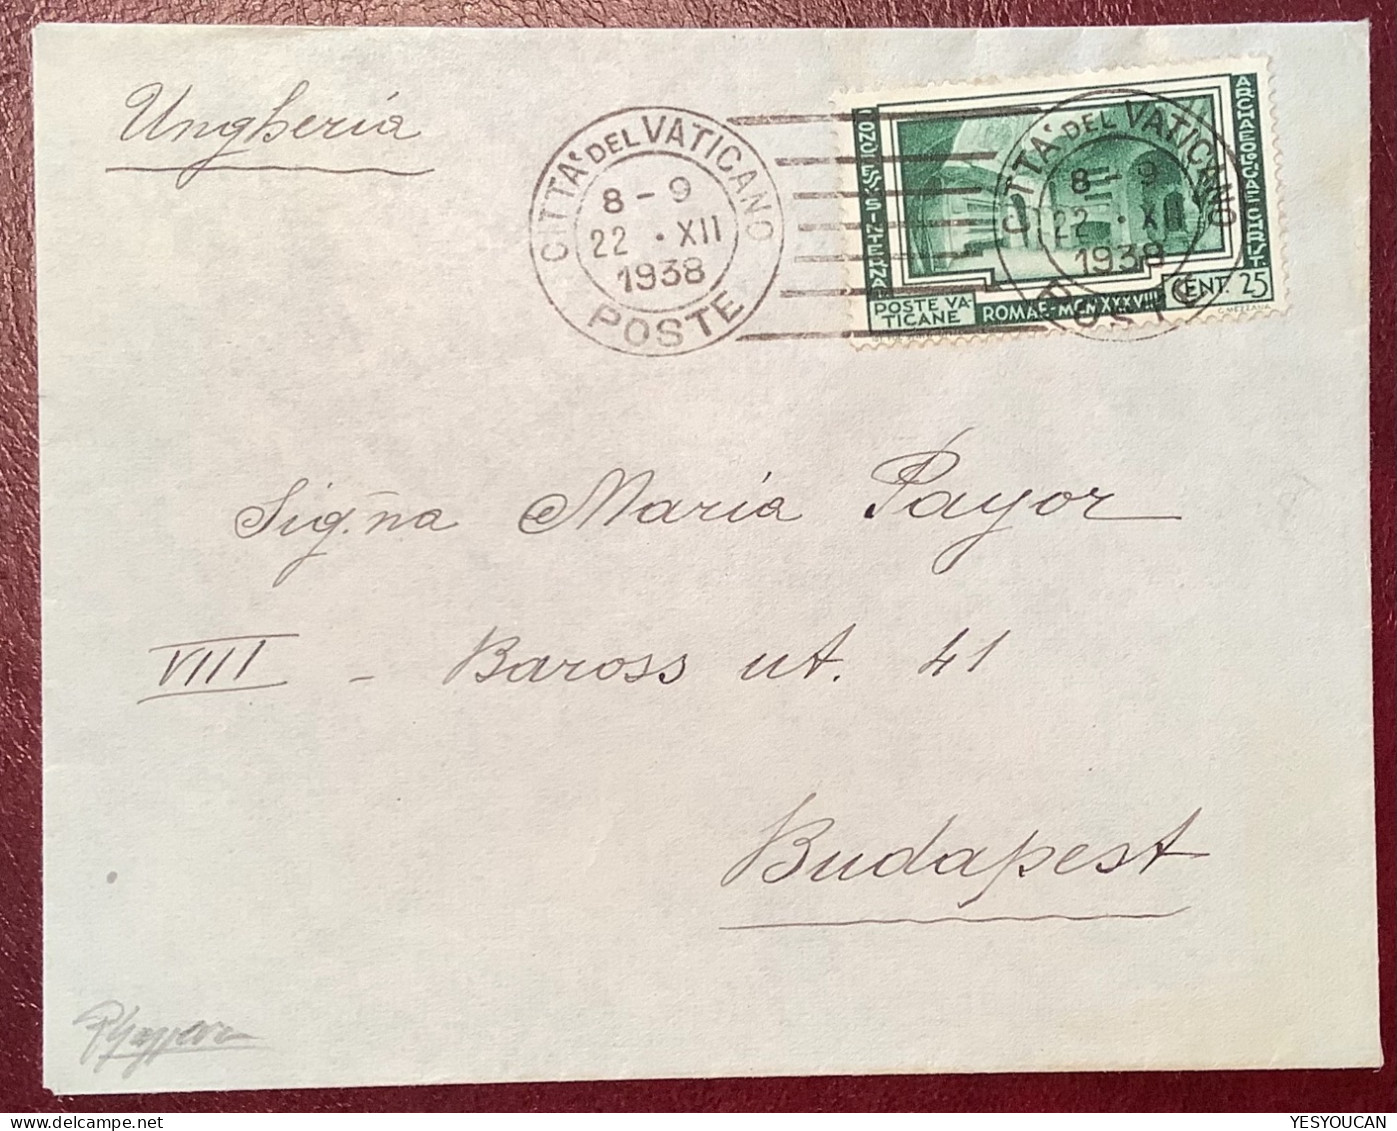 Ungheria
CITTA' DEL VATICANO
8 - 9
22 · XII
1938
POSTE
CITTA' DEL VATICANO
8 - 9
22 · XII
1938
POSTE
CONCRESSUS INTERNAT.
ARCHAEOLOGIAE CHRIST.
POSTE VA-
TICANE
ROMAE-MCMXXXVIII
CENT. 25
G. MEZZANA
Sig.ña Maria Payor
VIII - Baross ut. 41
Budapest
YESYOUCAN